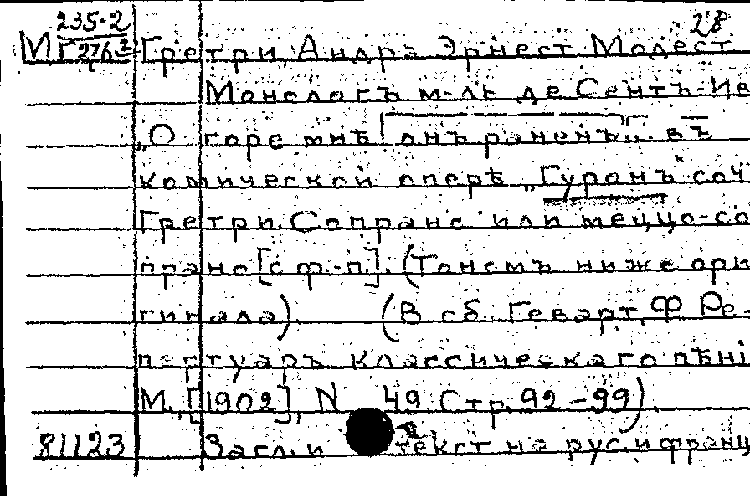 235-2
28
Мг 276 2 Гретри, Андрэ Эрнест Модест
Монолагъ м-ль де Сентъ-Ив
„О горе мнѣ [онъ раненъ]" въ
комической оперѣ „Гуронъ" соч
Гретри. Сопрано или меццо-со
прано [с ф.-п]. (Тономъ ниже ори
гинала). (В сб. Геварт, Ф Ре-
пертуаръ классическаго пѣні
М., [1902], N 49. Стр. 92-99).
81123 Загл. и текст на рус. и франц